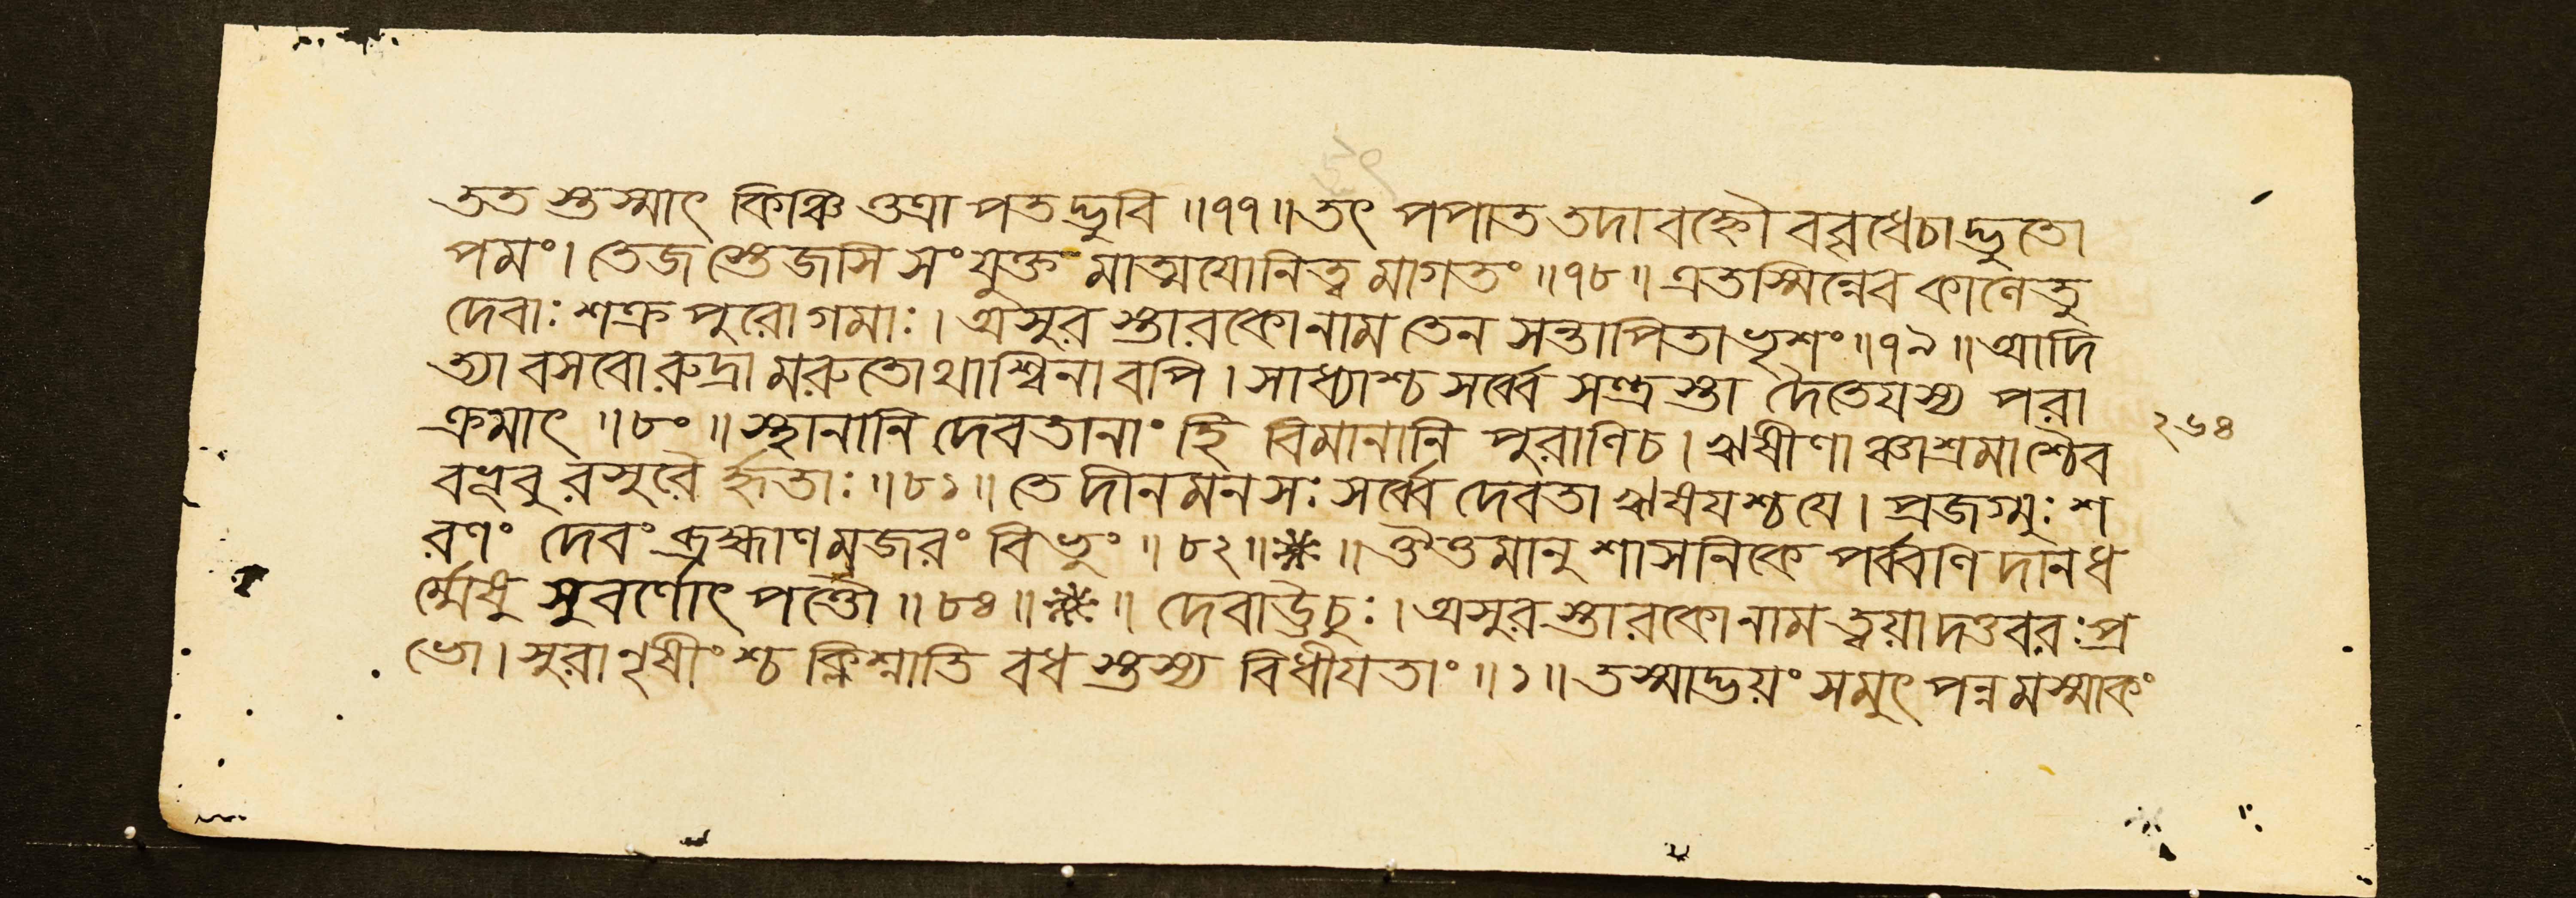 তত স্তস্মাৎ কিঞ্চি ত্তত্রা পতদ্ভুবি ॥৭৭॥ তৎ পপাত তদা বহ্নৌ ববৃধে চাদ্ভুতো
পমং। তেজ স্তেজসি সংযুক্ত মাত্মযোনিত্ব মাগতং ॥৭৮॥ এতস্মিন্নেব কালে তু
দেবাঃ শক্র পুরোগমাঃ। অসুর স্তারকো নাম তেন সন্তাপিতা ভৃশং ॥৭৯॥ আদি
ত্যা বসবো রুদ্রা মরুতো থাশ্বিনাবপি। সাধ্যাশ্চ সর্ব্বে সন্ত্রস্তা দৈতেযস্য পরা
ক্রমাৎ ॥৮০॥ স্থানানি দেবতানাং হি বিমানানি পুরাণি চ। ঋষীণাঞ্চাশ্রমাশ্চৈব
বভূবু রসুরৈ র্হৃতাঃ ॥৮১॥ তে দীনমনসঃ সর্ব্বে দেবতা ঋষযশ্চ যে। প্রজগ্মুঃ শ
রণং দেবং ব্রহ্মাণমজরং বিভুং ॥৮২॥❋॥ ঔত্তমানুশাসনিকে পর্ব্বণি দানধ
র্ম্মেষু সুবর্ণোৎপত্তৌ ॥৮৪॥❋॥ দেবা ঊচুঃ। অসুর স্তারকো নাম ত্বয়া দত্তবরঃ প্র
ভো। সুরানৃষীংশ্চ ক্লিশ্নাতি বধ স্তস্য বিধীযতাং ॥১॥ তস্মাদ্ভয়ং সমুৎপন্ন মস্মাকং
২৬৪